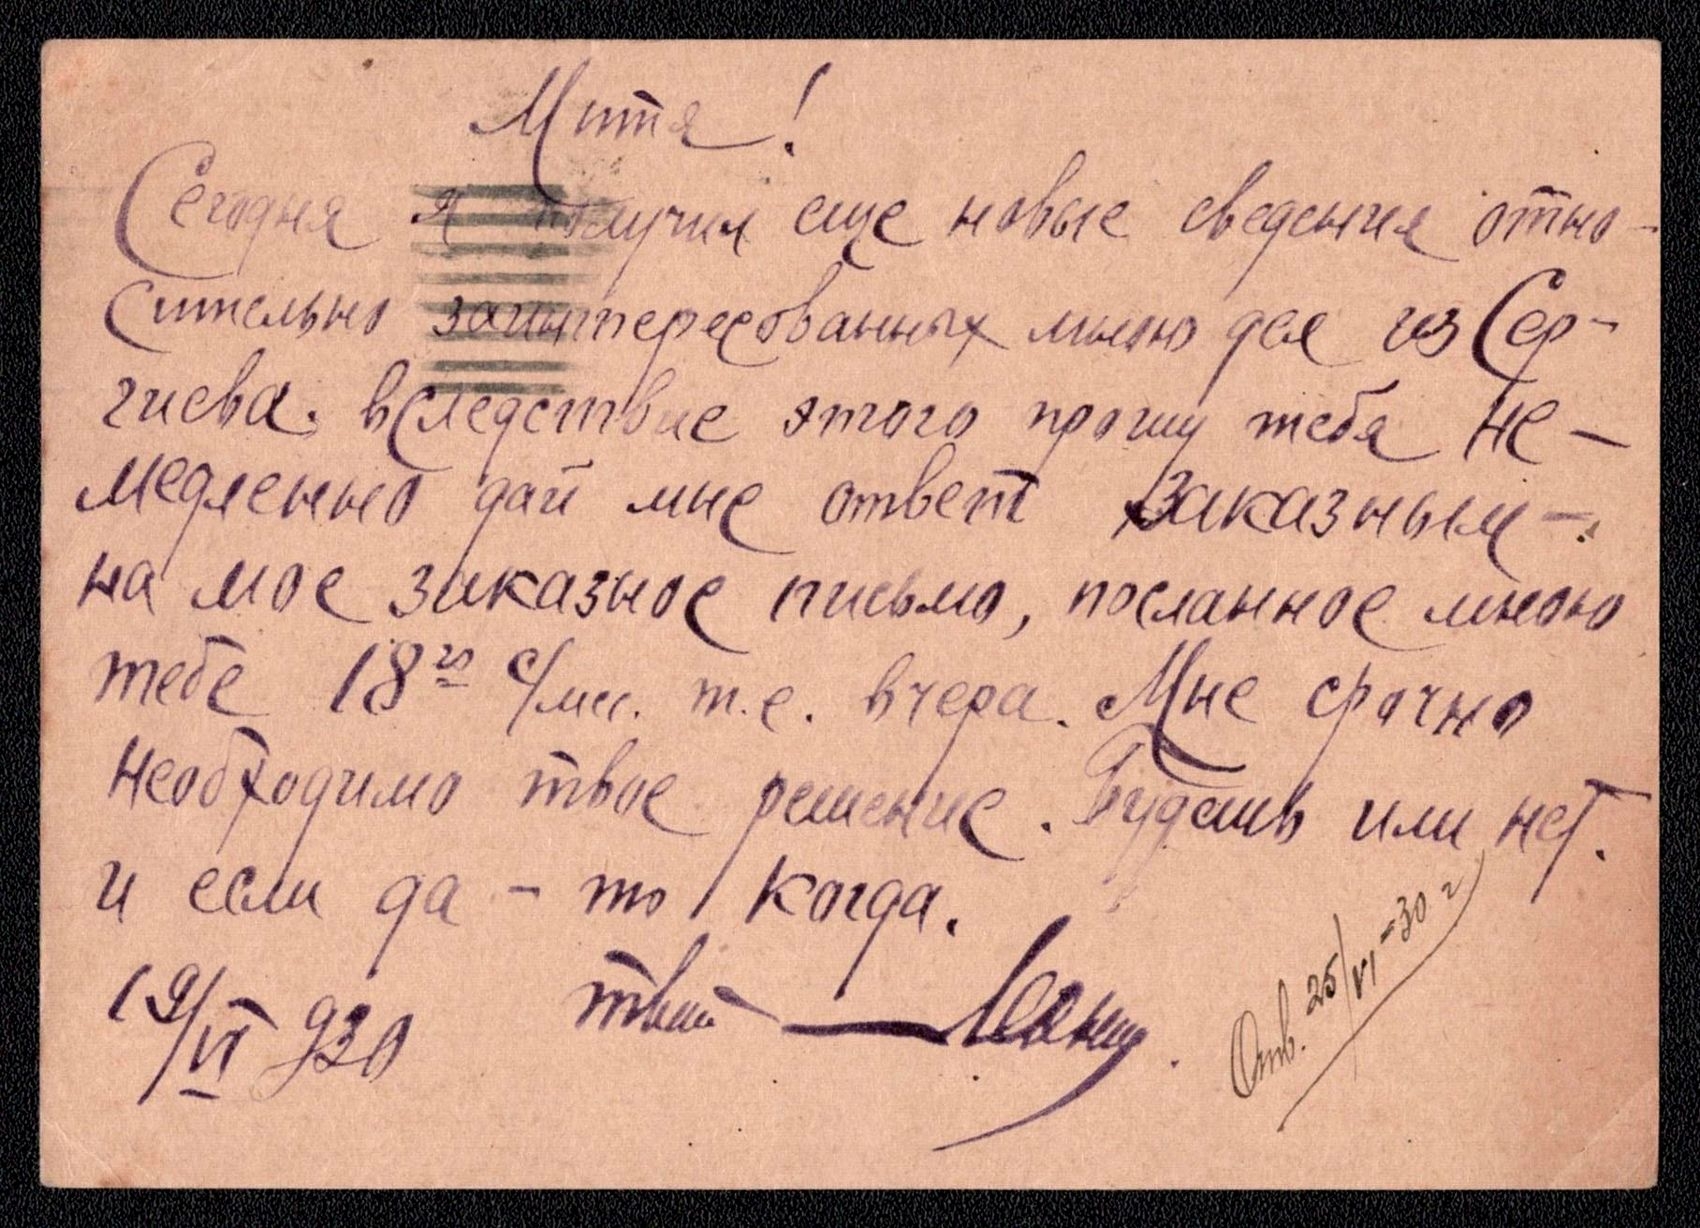 Митя!
Сегодня я получил еще новые сведения отно-
сительно заинтересованных мною дел из Сер-
гиева. вследствие этого прошу тебя не-
медленно дай мне ответ заказным -
на мое заказное письмо, посланное мною
тебе 18го с/мес. т.е. вчера. Мне срочно
необходимо твое решение. Будешь или нет.
и если да - то когда.
19/VI 930 твой — Леонид.
Отв. 25/VI-30 г